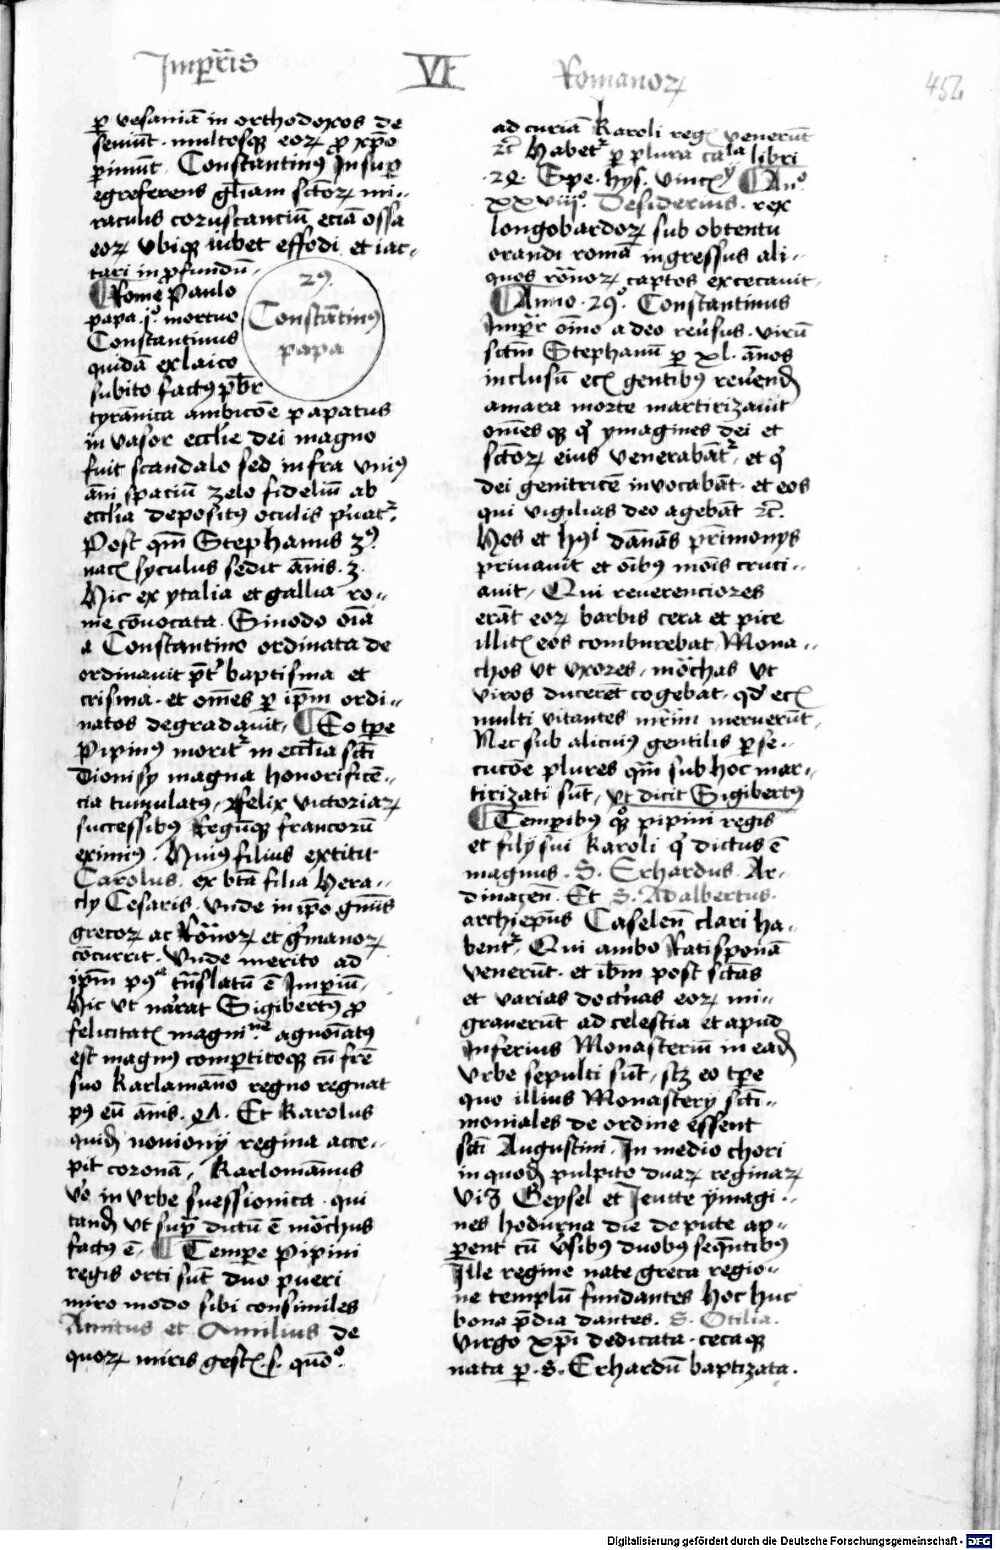 Imp̄r̄is VI Romanoꝝ 454
ꝑ vesaniā in orthodoxos de
seuiūt · multosqꝫ eoꝝ ꝓ xp̄o
ꝑimūt Constantinꝰ Insuꝑ
egreferens gl̄iam sc̄toꝝ mi-
raculis coruscanciū eciā ossa
eoꝝ vbiqꝫ iubet effodi et iac-
tari in ꝓfundū ·
29
Constātinꝰ
papa
¶ Rome Paulo
papa · jͦ · mortuo
Constantinus
quidā ex laico
subito factꝰ p̄br
tyrānica ambicōe papatus
in vasor eccl̄ie dei magno
fuit scandalo sed infra vniꝰ
āni spaciū zelo fideliū ab
eccl̄ia depositꝰ oculis p'uat᷑
Post quē Stephanus 3ꝰ
nac̄ sculus sedit ānis · 3 ·
Hic ex ytalia et gallia ro-
me cōuocata Sinodo oīa
a Constantino ordinata de
ordinauit p̄t baptisma et
crisma · et om̄es ꝑ ip̄m ordi-
natos degradauit · ¶ Eo tꝑe
Pipinꝰ morit᷑ in eccl̄ia sc̄ti
Dionisy magna honorificē-
cia tumulatꝰ · felix victoriaꝝ
successibꝰ Regūqꝫ francorū
eximiꝰ · Huiꝰ filius extitit
Carolus · ex bt̄a filia Hera-
cly Cesaris · vnde in ip̄o gen̄s
grecoꝝ ac Ro̅noꝝ et g'manoꝝ
cōcurrit · Vnde merito ad
ip̄m pꝰ t̄nslatū ē Imperiū ·
Hic vt narrat Sigibertꝰ ꝓ
felicitat̄ magni agnoiatꝰ
est magnꝰ comꝑtitoqꝫ cū fr̄e
suo karlamāno regno regnat
pꝰ eū ānis · 47 · Et Karolus
quidē nouionij regina acce-
pit coronā · Karlomānus
v̄o in vrbe suessionica · qui
tandē vt sup̄ dictū ē mōchus
factꝰ ē · ¶ Tempe pipini
regis orti sūt duo pueri
miro modo sibi consimiles
Amicus et Amilius de
quoꝝ miris gest̄ · s · quōͦ ·
ad curiā Karoli reḡ venerūt
⁊c̄ Habet᷑ ꝑ plura ca la libri
· 24 · Spe · hys · vincē ¶ Anͦ
xxviijͦ · Desiderius · rex
longobardoꝝ sub obtentu
orandi romā ingressus ali-
quos ro̅noꝝ captos excecauit ·
¶ Anno · 29ͦ · Constantinus
Imp̄r om̄o a deo reūsus · virū
sc̄tm Stephanū ꝑ xl · ānos
inclusū ec̄ gentibꝰ reuendē
amara morte martirizauit
om̄es qꝫ q' ymagines dei et
sc̄toꝝ eius venerabāt᷑ · et q'
dei genitricē inuocabāt · et eos
qui vigilias deo agebāt ⁊c̄ ·
Hos et hꝰi dānās p̄rimonys
priuauit et oībꝰ mōis cruci-
auit · Qui reuerenciores
erāt eoꝝ barbis cera et pice
illit̄ eos comburebat · Mona-
chos vt vxores · mōchas vt
viros ducerēt cogebat · qđ ec̄
multi vitantes mr̄im meruerūt ·
Nec sub alicuiꝰ gentilis ꝑse-
cucōe plures quā sub hoc mar-
tirizati sūt · vt dicit Sigibertꝰ
¶ Temꝑibꝰ qͦꝫ pipini regis
et filij sui Karoli q' dictus ē
magnus · S · Erhardus Ar-
dinacen̄ · Et S · Adalbertus ·
archiep̄us Caselen̄ clari ha-
bent᷑ · Qui ambo Ratisponā
venerūt · et ib̄m post sc̄tas
et varias doct'nas eoꝝ mi-
grauerūt ad celestia et apud
Inferius Monasteriū in eadē
vrbe sepulti sūt · sꝫ eo tꝑe
quo illius Monastery sc̄ti-
moniales de ordine essent
sc̄ti Augustini · In medio chori
in quodē pulpito duaꝝ reginaꝝ
viꝫ Geysel et Jeutte ymagi-
nes hodierna die depicte ap-
ꝑent cū v'sibꝰ duobꝰ seq̄ntibꝰ
Ille regine nate greca regio-
ne templū fundantes hoc huc
bona p̄dia dantes · S · Otilia ·
virgo xp̄i dedicata · ceca qꝫ
nata ꝑ · S · Erhardū baptizata ·
Digitalisierung gefördert durch die Deutsche Forschungsgemeinschaft - DFG